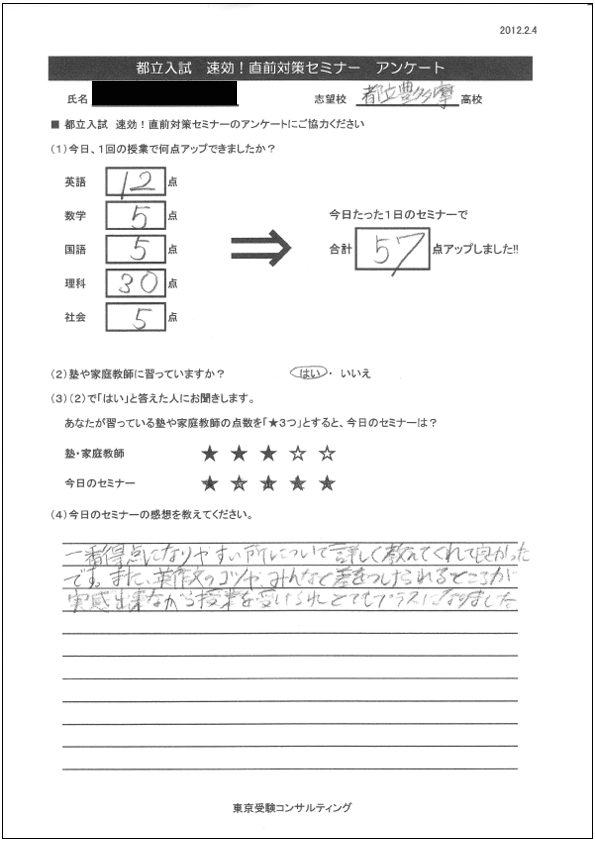 2012.2.4
都立入試 速効!直前対策セミナー アンケート
氏名 志望校 都立豊多摩 高校
■ 都立入試 速効!直前対策セミナーのアンケートにご協力ください
(1)今日、1回の授業で何点アップできましたか?
英語 12 点
数学 5 点
今日たった1日のセミナーで
国語 5 点
合計 57 点アップしました!!
理科 30 点
社会 5 点
(2)塾や家庭教師に習っていますか? はい ・ いいえ
(3)(2)で「はい」と答えた人にお聞きします。
あなたが習っている塾や家庭教師の点数を「★3つ」とすると、今日のセミナーは?
塾・家庭教師 ★ ★ ★ ☆ ☆
今日のセミナー ★ ★ ★ ★ ★
(4)今日のセミナーの感想を教えてください。
一番得点になりやすい所について詳しく教えてくれて良かった
です。また、英作文のコツや、みんなと差をつけられるところが
実感出来ながら授業を受けられとてもプラスになりました
東京受験コンサルティング